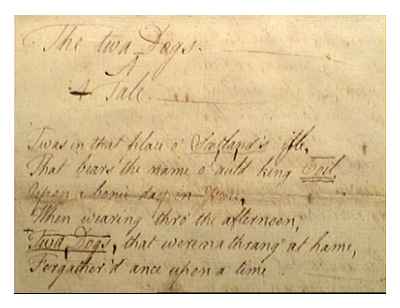 The twa Dogs.
A
Tale.
Twas in that place o' Scotland's isle,
That bears the name o' auld king Coil
Upon a bonie day in June,
When wearing thro' the afternoon,
Twa Dogs, that were na thrang at hame,
Forgather'd ance upon a time